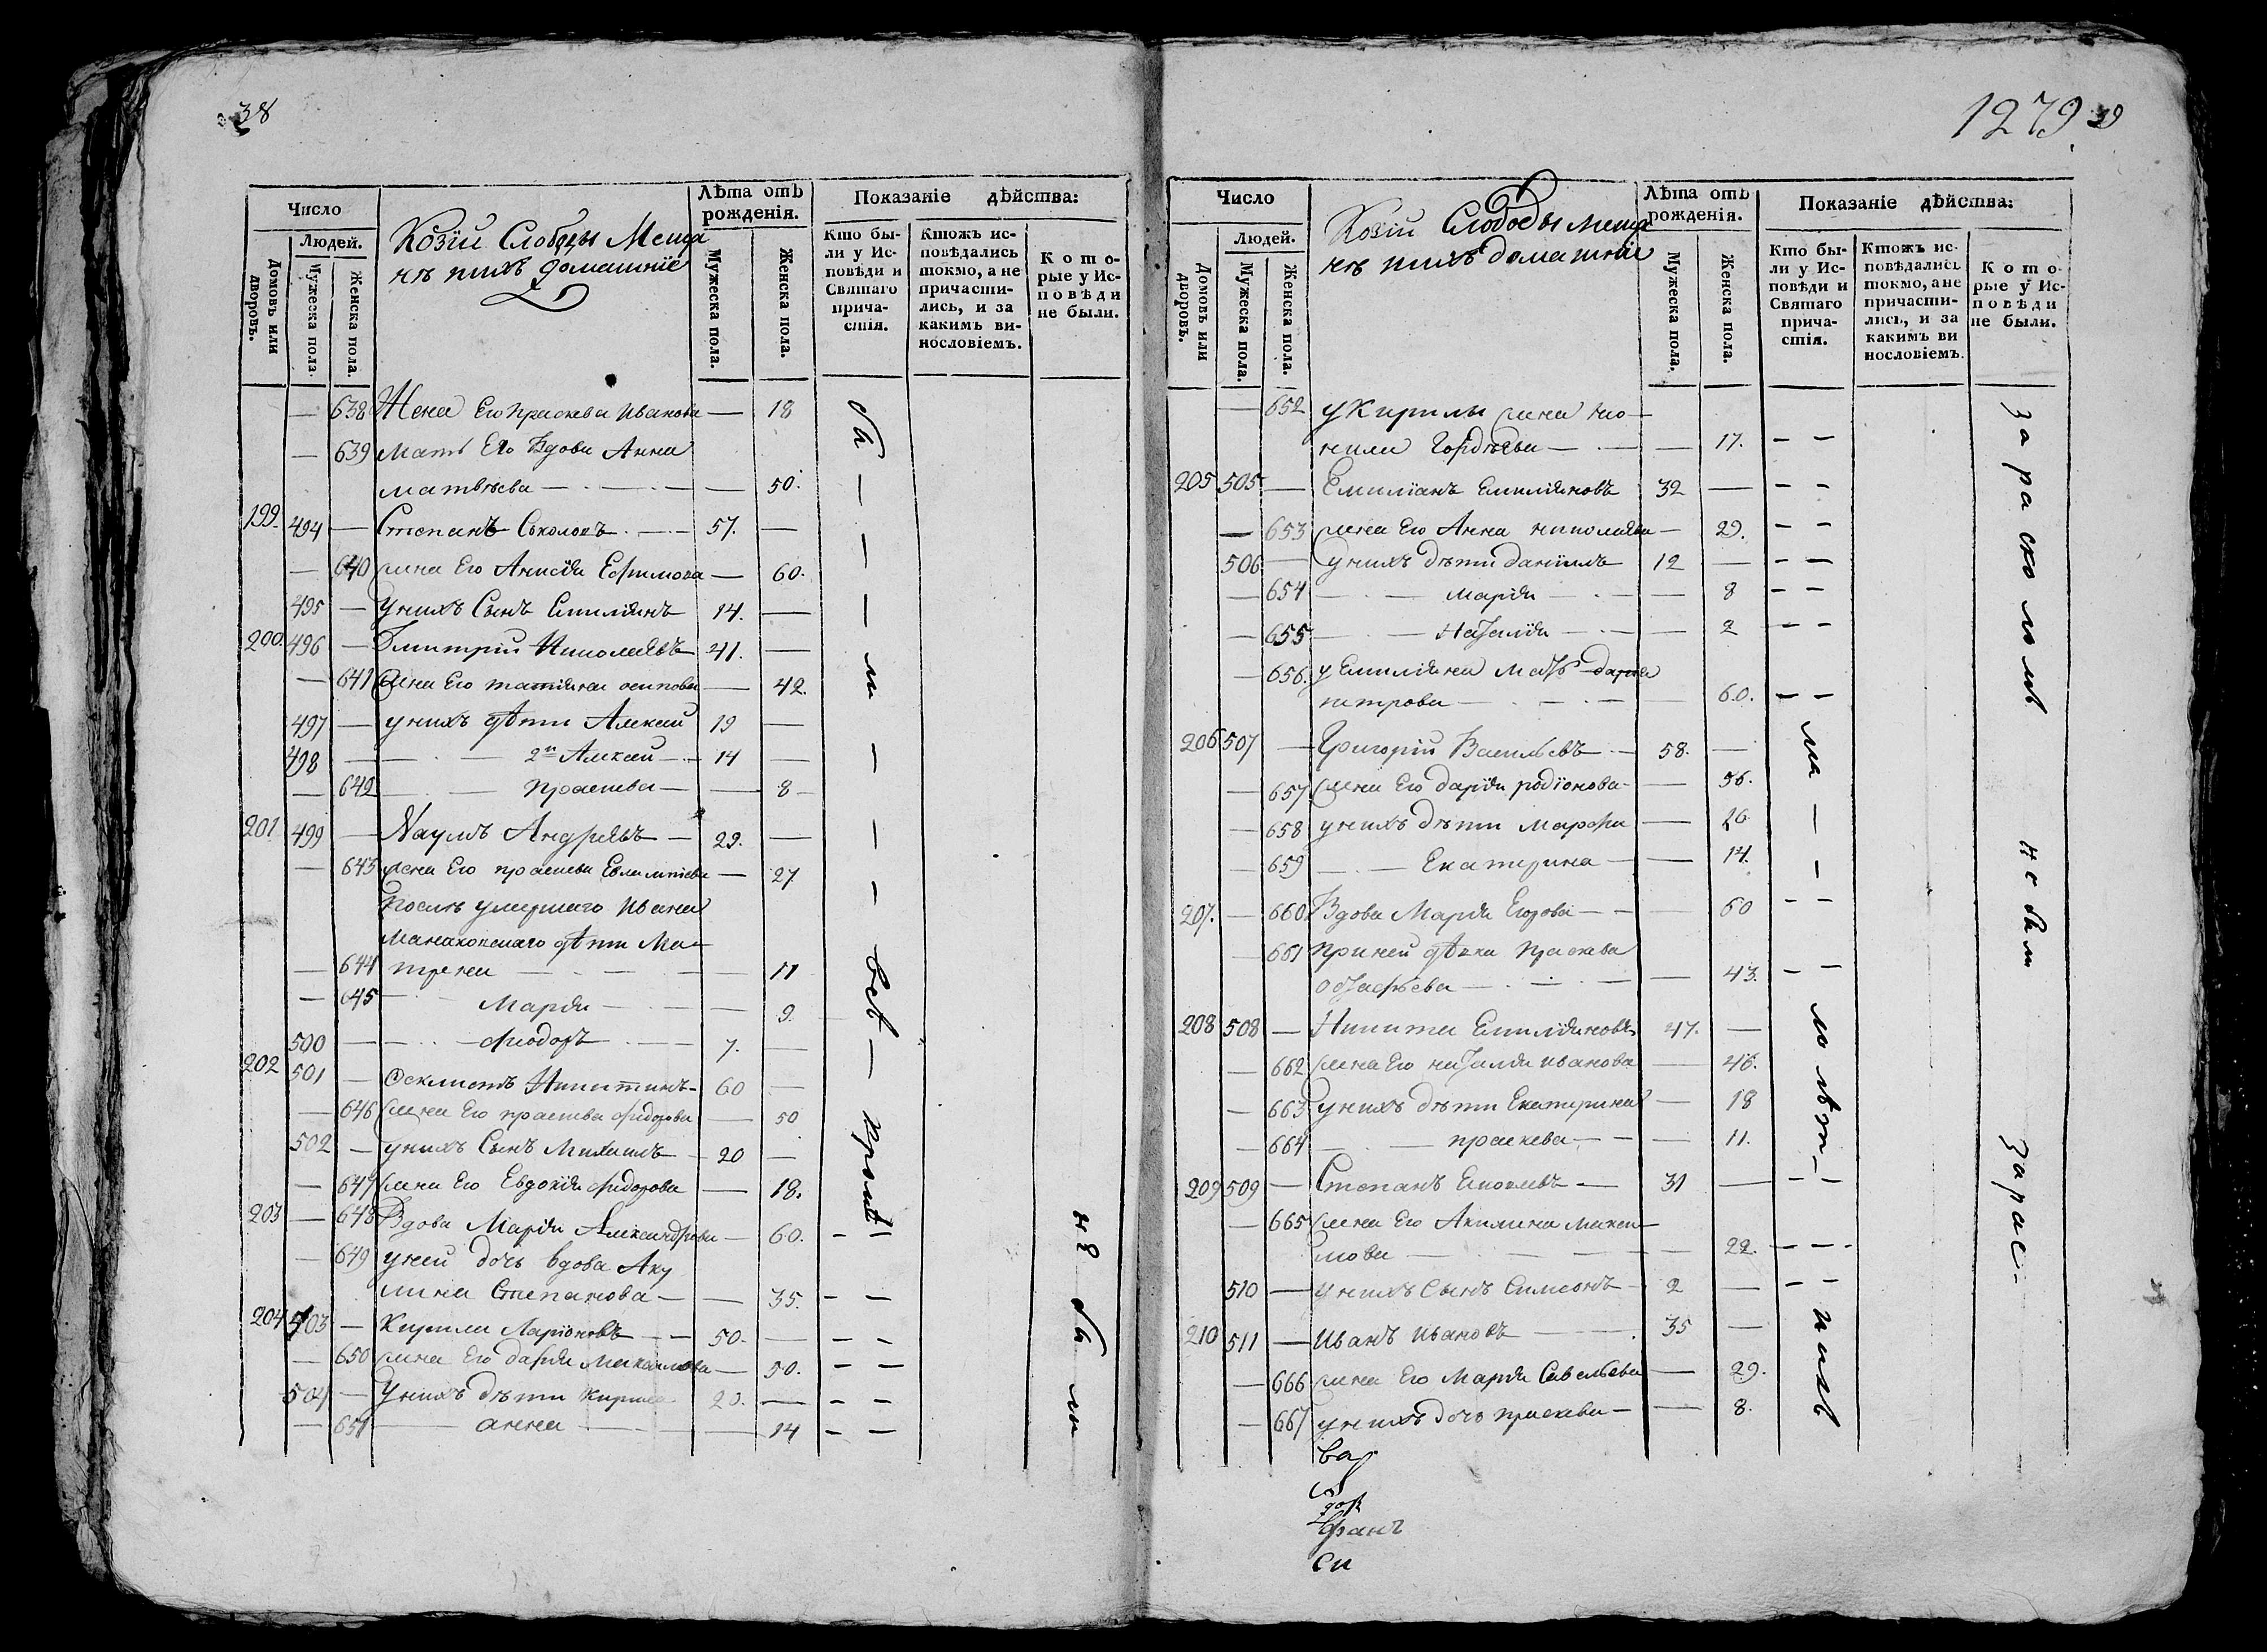 38
Число
Людей.
Домовъ или дворовъ.
Мужеска пола.
Женска пола.
Козїй Слободы Меща
нѣ ихъ домашнїе
Лѣта отъ рожденія.
Мужеска пола.
Женска пола.
Показаніе дѣйства:
Кто бы-
ли у Ис-
повѣди и
Святаго
прича-
стія.
Ктожъ ис-
повѣдались
токмо, а не
причасти-
лись, и за
какимъ ви-
нословіемъ.
Кото-
рые у Ис-
повѣди
не были.
— 638 Жена Его праскева Иванова — 18
— 639 Мать Его Вдова Анна
матвѣева — 50.
199. 494 — Степанъ Соколовъ 57. —
— 640 жена Его Анисїя Ефимова — 60.
495 — У нихъ Сынъ Емилїянъ 14. —
200. 496 — Дмитрїй Николаевъ 41. —
— 641 жена Его татїяна осипова — 42.
497 — у нихъ дѣти Алексѣй 19 —
498 — 2й Алексѣй 14 —
— 642 праскева — 8
201 499 — Наумъ Андреевъ 29. —
— 643 жена Его праскева Евлампїева — 27
После умершаго Ивана
дѣти Ма-
— 644 трена — 11
— 645 Марїя — 9.
500 — феодоръ 7. —
202 501 — Феклистъ Никитинъ 60 —
— 646 жена Его праскева федорова — 50
502 — у нихъ Сынъ Михаилъ 20 —
— 647 жена Его Евдокїя федорова — 18.
203 — 648 Вдова Марїя Александрова — 60.
— 649 у ней дочь вдова Аку
лина Степанова — 35.
204 503 — Кирила Ларїоновъ 50. —
— 650 жена Его дарїя Михаилова — 50.
504 — У нихъ дѣти Кирила 20. —
— 651 анна — 14
бы — — — ли — — — всѣ — кромѣ
не бы ли
1279. 39
Число
Людей.
Домовъ или дворовъ.
Мужеска пола.
Женска пола.
Козїй Слободы Меща
нѣ ихъ домашнїе
Лѣта отъ рожденія.
Мужеска пола.
Женска пола.
Показаніе дѣйства:
Кто бы-
ли у Ис-
повѣди и
Святаго
прича-
стія.
Ктожъ ис-
повѣдались
токмо, а не
причасти-
лись, и за
какимъ ви
нословіемъ.
Кото-
рые у Ис-
повѣди
не были.
— 652 у Кирилы жена Нео-
нила Гордѣева — 17.
205 505 — Емилїанъ Емилїяновъ 32 —
— 653 жена Его Анна николаева — 29.
506 — у нихъ дѣти данїилъ 12 —
— 654 марїя — 8
— 655 Наталїя — 2
— 656. у Емилїяна Мать дарїя
петрова — 60.
206 507 — Григорїй Васильевъ 58. —
— 657 жена Его дарїя родїонова — 56.
— 658 у нихъ дѣти марфа — 20
— 659 Екатерина — 14.
207. — 660 Вдова Марїя Егорова — 60
— 661 при ней дѣвка праскева
остафьева — 43.
208 508 — Никита Емилїяновъ 47. —
— 662 жена Его наталїя иванова — 46.
— 663 у нихъ дѣти Екатерина — 18
— 664 праскева — 11.
209 509 — Степанъ Яковлевъ 31 —
— 665 жена Его Акилина макси-
мова — 22.
510 — у нихъ сынъ Симеонъ 2 —
210 511 — Иванъ Ивановъ 35 —
— 666 жена Его Марїя Савельева — 29.
— 667 у нихъ дочь праскева — 8.
за расколомъ не были за рас-